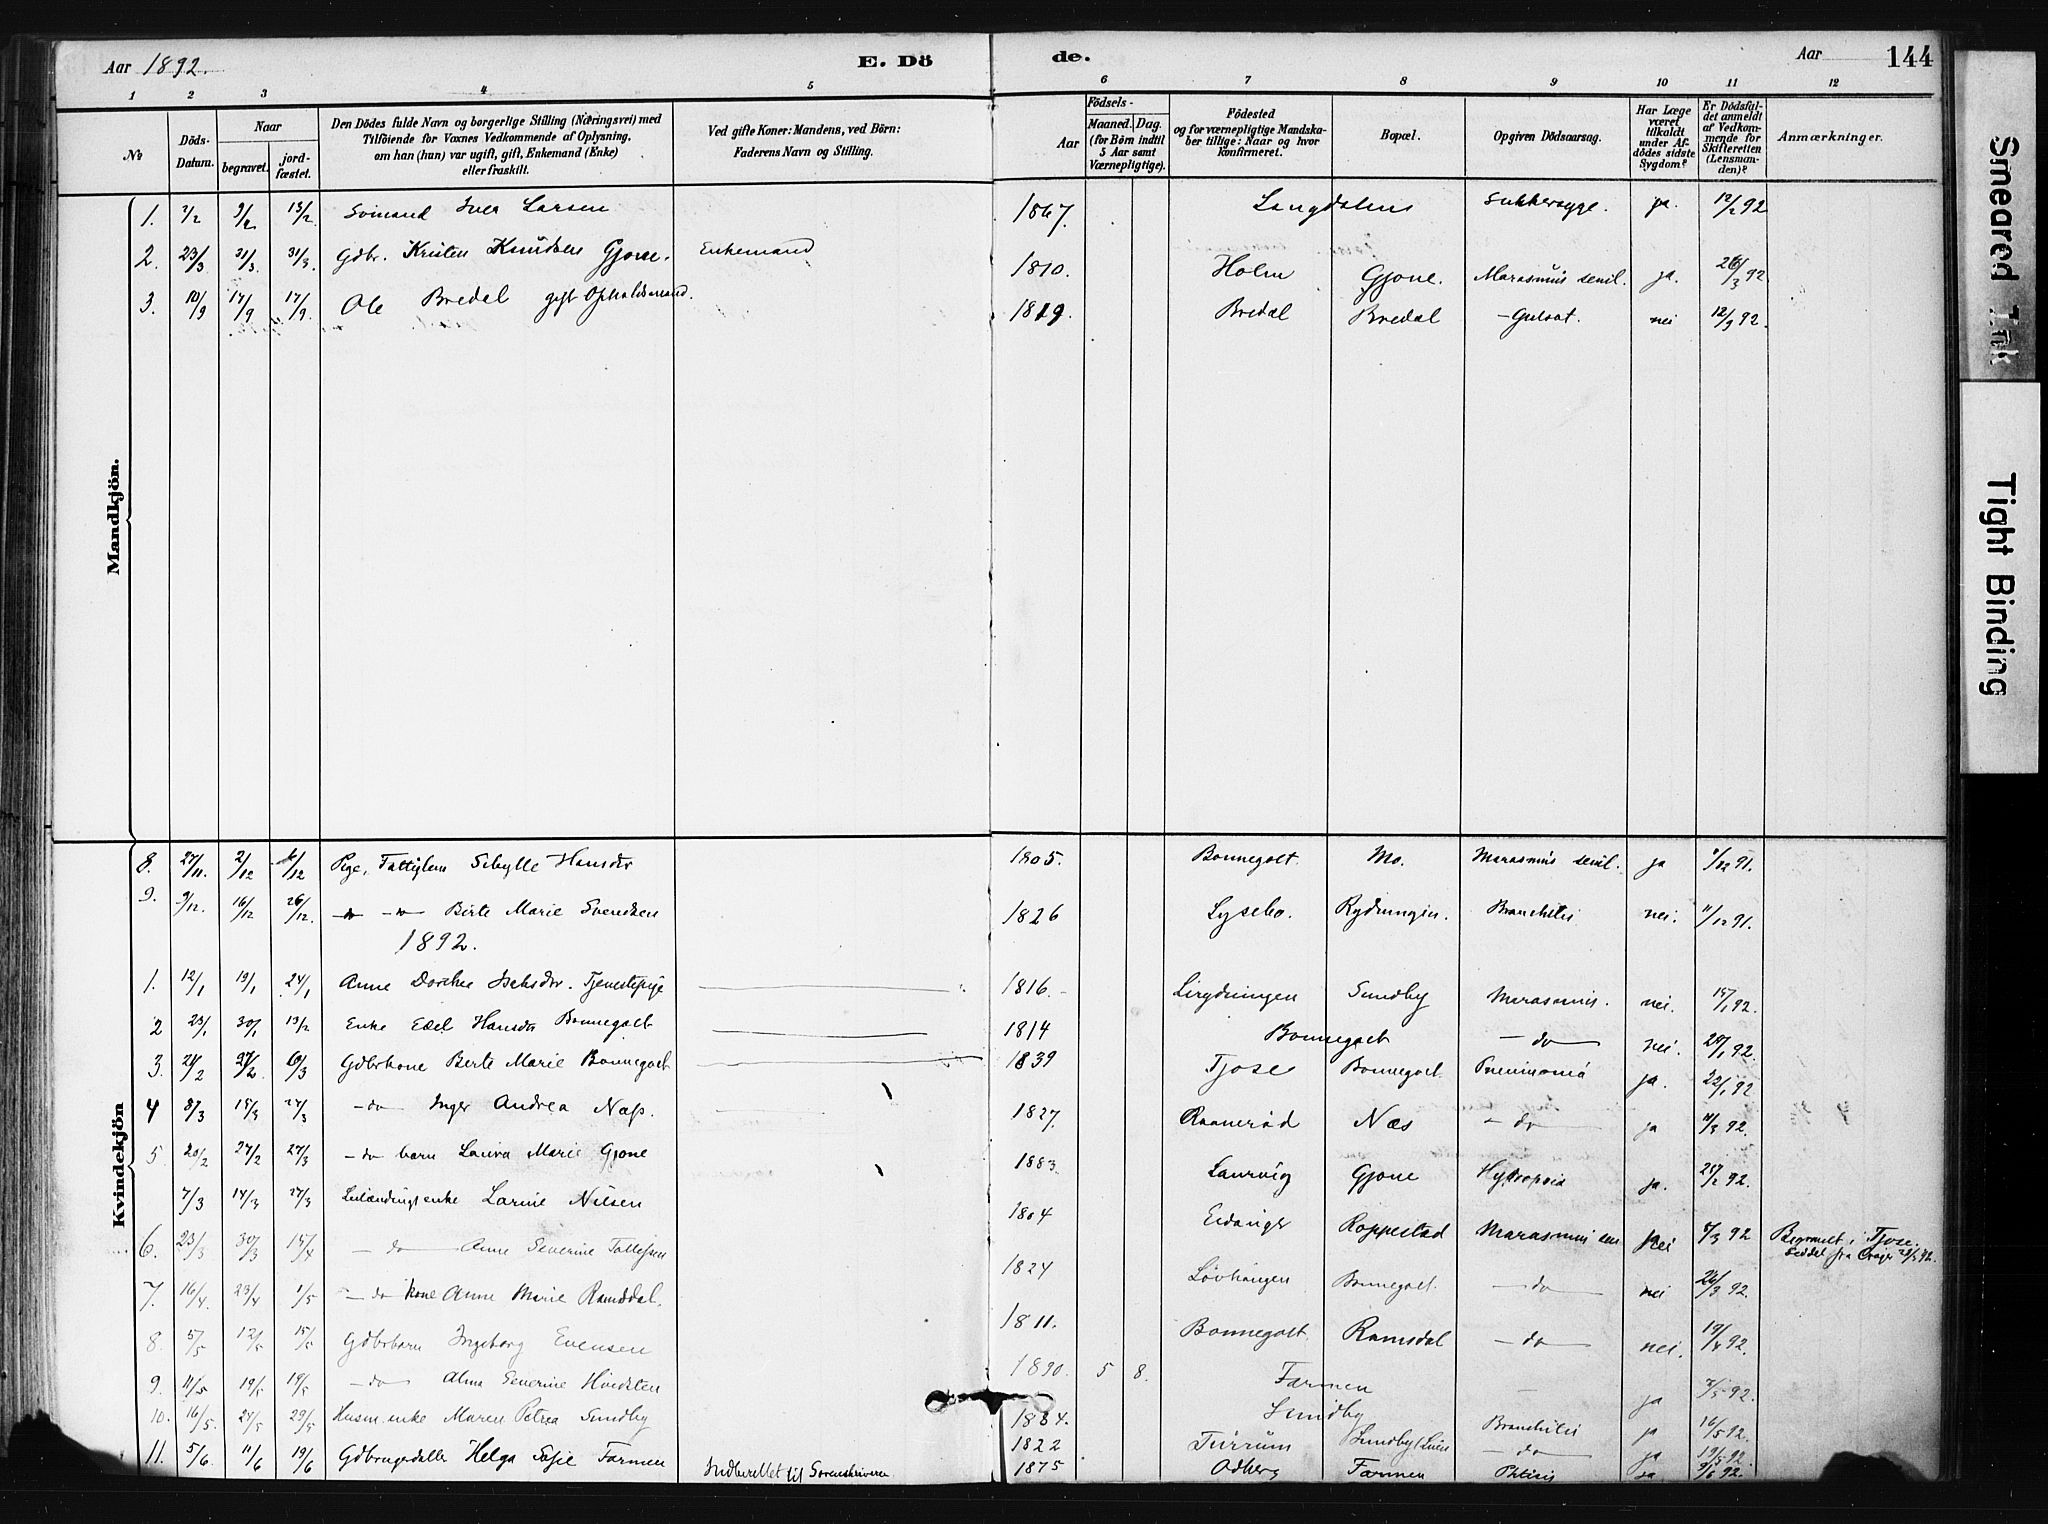 Aar 1892. E. Dö de. Aar 144
1 2 3 4 5 6 7 8 9 10 11 12
No
Döds-Datum.
Naar
begravet.
jord-fæstet.
Den Dödes fulde Navn og borgerlige Stilling (Næringsvei) med
Tilföiende for Voxnes Vedkommende af Oplysning.
om han (hun) var ugift, gift, Enkemand (Enke)
eller fraskilt.
Ved gifte Koner: Mandens, ved Börn:
Faderens Navn og Stilling.
Födsels-
Aar
Maaned. Dag.
(for Börn indtil
5 Aar samt
Værnepligtige).
Födested
og for værnepligtige Mandska-
ber tillige: Naar og hvor
konfirmeret.
Bopæl.
Opgiven Dödsaarsag.
Har Læge
været
tilkaldt
under Af-
dödes sidste
Sygdom?
Er Dödsfal-
det anmeldt
af Vedkom-
mende for
Skifteretten
(Lensman-
den)?
Anmærkninger.
Mandkjön.
1. 2/2 9/2 13/2 Sömand Iver Larsen 1867. Langdalens Sukkersyge. ja. 12/2 92
2. 23/3 31/3. 31/3. Gdbr. Kristen Knudsen Gjone. Enkemand 1810. Holm Gjone. Marasmus senil. ja. 26/3 92
3. 10/9 17/9 17/9. Ole Bredal gift Opholdsmand. 1819. Bredal Bredal Gulsot. nei 12/9 92.
Kvindekjön
8. 27/11. 2/12 6/12 Pige, Fattiglem Sibylle Hansdr 1805. Bonnegolt. Mo. Marasmus senil. ja 1/12 91.
9. 9/12. 16/12 26/12. do do Birte Marie Svendsen 1826 Lysebo. Rydningen. Bronchitis nei. 11/12 91.
1892.
1. 12/1 19/1 24/1 Anne Dorthea Isaksdr. Tjenestepige 1816. Sundby Marasmus. nei. 15/1 92.
2 23/1 30/1 13/2 Enke Edel Hansdr Bonnegolt 1814 Bonnegolt do nei. 92.
3. 2/2 27/2. 6/3 Gdbrkone Berte Marie Bonnegolt 1839 Tjose Bonnegolt Pneumonia ja. 92
4 8/3 15/3 27/3 do Inger Andrea Næss. 1827. Raanerød Næs do ja 11/3 92.
5. 20/2 27/2 27/3 do barn Laura Marie Gjone 1883. Laurvig Gjone Hydropsia ja. 92.
7/3 14/3 27/3 enke Larine Nilsen 1804 Eidanger Roppestad Marasmus sen nei 8/3 92 Begravet i Tjose. Seddel fra
6. 23/3 30/3 15/4 do Anne Severine Tollefsen 1824 Løvhaugen Bonnegolt. do nei 26/3 92.
7. 16/4. 23/4 1/5 do kone Anne Marie Ramsdal. 1811. Bonnegolt Ramsdal do nei. 19/4 92.
8. 5/5 12/5 15/5 Gdbrbarn Ingeborg Evensen 1890. 5 8. Farmen ja 92.
9. 11/5 19/5 19/5 do Alma Severine Hvidsten 1884. Sundby Bronchitis ja 16/5 92.
10. 16/5. 27/5 29/5 Husm. enke Maren Petrea Sundby 1822 Sundby do ja 19/5 92
11. 5/6. 11/6 19/6 Gdbrugerdatter Helga Sofie Farmen Indberettet til Sorenskriveren 1875 Odberg Farmen Phtisis ja 92.
Smeared Ink
Tight Binding